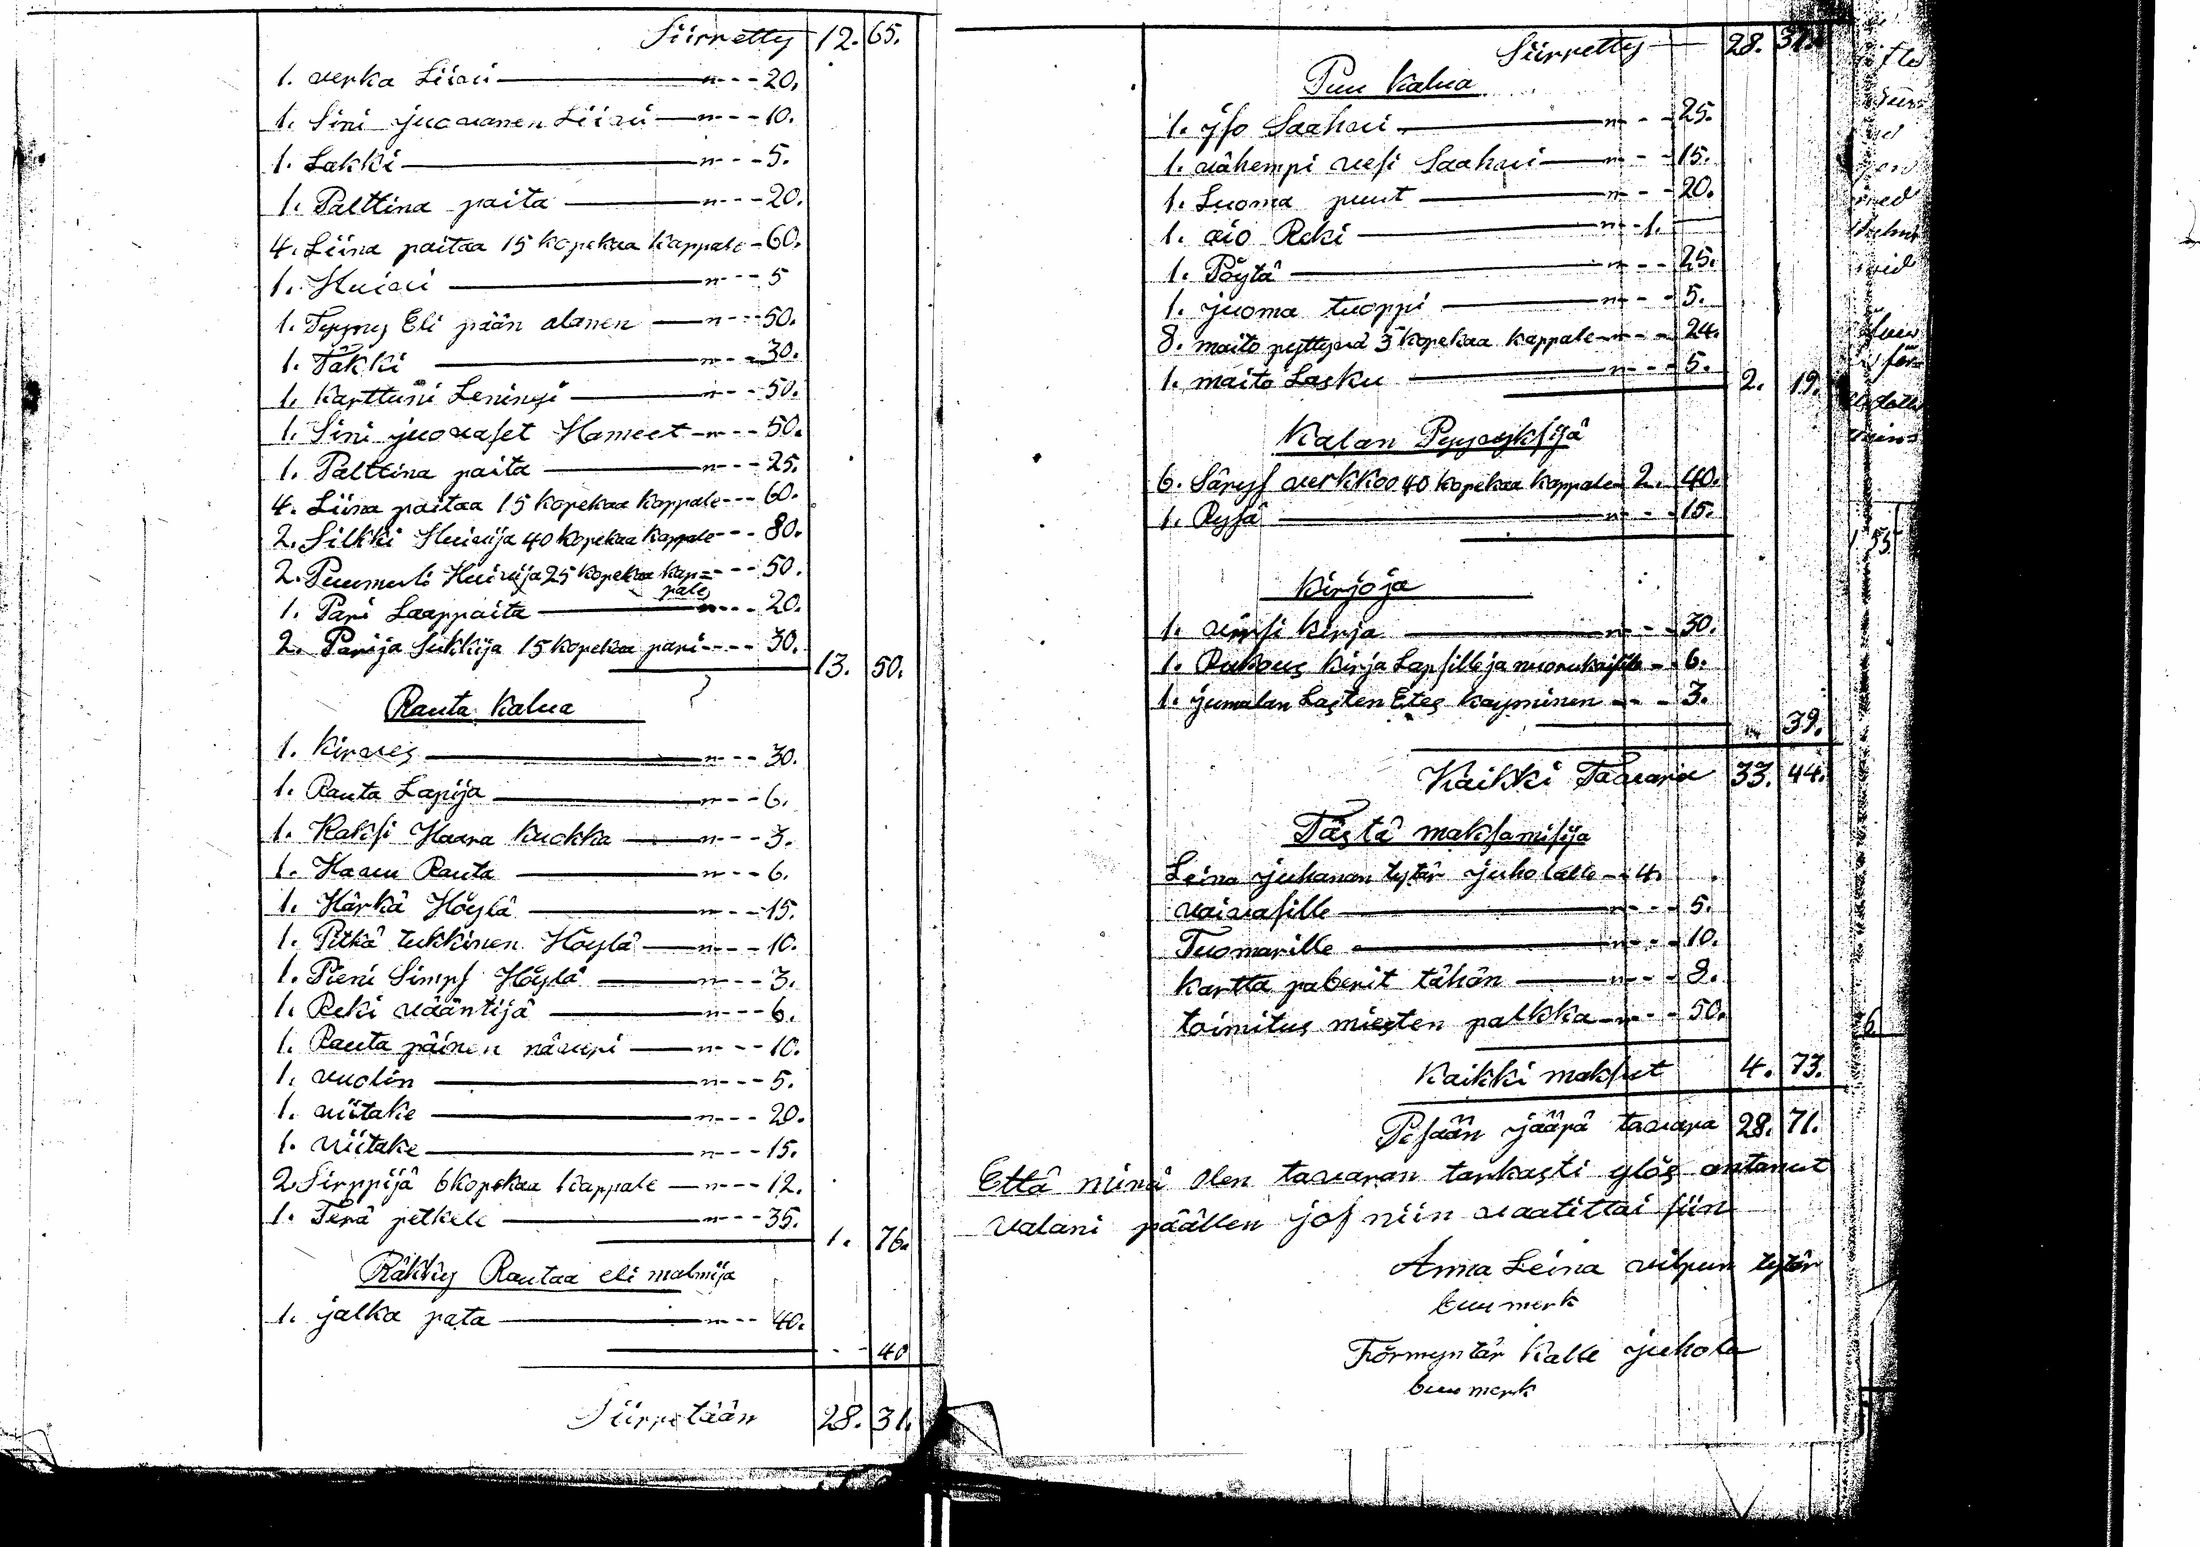 Siirretty 12. 65.
1. verka Liivi — " - - - 20.
1. Sini juovanen Liivi — " - - - 10.
1. Lakki — " - - - 5.
1. Palttina paita — " - - - 20.
4. Liina paitaa 15 kopekaa kappale - 60.
1. Huivi — " - - - 5
1. Tyyny Eli pään alanen — " - - - 50.
1. Täkki — " - - - 30.
1. Karttuni Leninki — " - - - 50.
1. Sini juovaset Hameet — " - - - 50.
1. Palttina paita — " - - - 25.
4. Liina paitaa 15 kopekaa kappale - - - 60.
2. Silkki Huivija 40 kopekaa kappale - - - 80.
2. Puumuli Huivija 25 kopekaa kap= - - - 50.
pale
1. Pari Laappaita — " - - - 20.
2. Parija Sukkija 15 kopekaa pari - - - - 30.
13. 50.
Rauta kalua
1. Kirves — " - - - 30.
1. Rauta Lapija — " - - - 6.
1. Kaksi Haara kuokka — " - - - 3.
1. Haru Rauta — " - - - 6.
1. Härkä Höylä — " - - - 15.
1. Pitkä tukkinen Höylä — " - - - 10.
1. Pieni Simps Höylä — " - - - 3.
1. Reki vääntijä — " - - - 6.
1. Rauta päinen nävuri — " - - - 10.
1. vuolin — " - - - 5.
1. viitake — " - - - 20.
1. viitake — " - - - 15.
2 Sirppijä 6 kopekaa kappale — " - - - 12.
1. Terä petkele — " - - - 35.
1. 76.
Räkky Rautaa eli malmija
1. jalka pata — " - - - 40.
- - 40
Siirretään 28. 31.
Siirretty — 28. 31.
Puu kalua
1. jso Saahvi — " - - - 25.
1. vähempi vesi Saahvi — " - - - 15.
1. Luoma puut — " - - - 20.
1. aio Reki — " - 1. —
1. Pöytä — " - - - 25.
1. juoma tuoppi — " - - - 5.
8. maito pyttyvä 3 kopekaa kappale — " - - - 24.
1. maito Lasku — " - - - 5.
2. 19.
Kalan Pyyvyksijä
6. Särys verkkoo 40 kopekaa kappale - 2. 40.
1. Rysä — " - - - 15.
Kirjoja
1. virsi kirja — " - - - 30.
1. Rukous kirja Lapsille ja nuorukaisille - - 6.
1. jumalan Lasten Etes kayminen - - - - 3.
" 39.
Kaikki Tavara 33. 44.
Tästä maksamisija
Leina juhanan tytär juholalle - - 4.
vaivasille — " - - - 5.
Tuomarille — " - - - 10.
kartta paberit tähän — " - - - 8.
toimitus miesten palkka — " - - - 50.
Kaikki maksut 4. 73.
Pesään jääpä tavara 28. 71.
Että minä olen tavaran tarkasti ylös antanut
valani päällen jos niin vaatittai siin
Anna Leina vilpun tytär
buumerk
Förmyntär Kalle juhola
buumerk